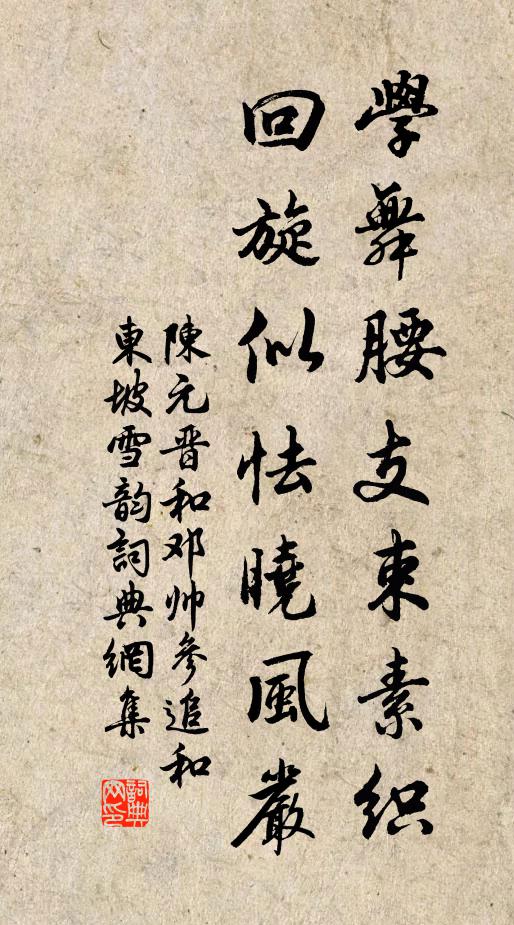 學舞腰支束素織
回旋似怯曉風嚴
陳元晋和邓帅參追和
東坡雪韵詞典網集
詞典网印